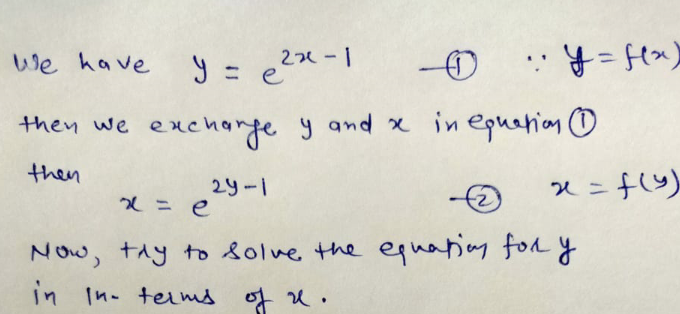 We have y = e^{2x-1} —① ∵ y = f(x)
then we exchange y and x in equation ①
then
x = e^{2y-1} —② x = f(y)
Now, try to solve the equation for y
in In- terms of x.